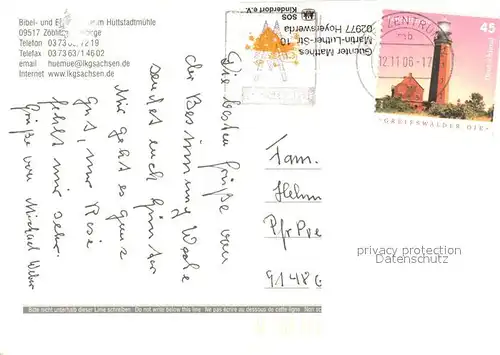 Bibel- und E um Hüttstadtmühle
09517 Zöblitz orge
Telefon 03 73 6 2 19
Telefax 03 73 63/1461
email huemue@lkgsachsen.de
Internet www.lkgsachsen.de
SOS
Kinderdorf e.V.
Guenter Matthes
Martin-Luther-Str. 10
02977 Hoyerswerda
ZENTRUM
-mb
12.11.06-1
45
Deutschland
GREIFSWALDER OIE
Die besten Grüße von
der Besinnung Woche
sendet euch Günter
Mir geht es ganz
gut, nur Rosi
fehlt mir sehr.
Grüße von Michael
Fam.
Helm
Pfr Pre
91486
privacy protection
Datenschutz
Bitte nicht unterhalb dieser Linie schreiben. Do not write below this line Ne pas écrire au dessous de cette ligne. Non